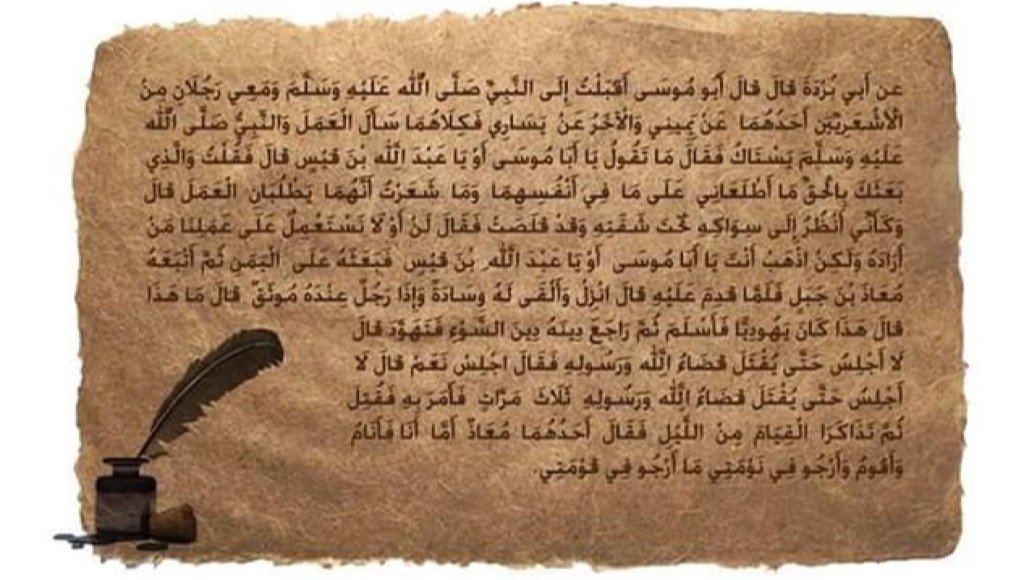 عن أَبي بُرْدَةَ قالَ قالَ أَبُو مُوسَى أَقْبَلْتُ إِلَى النَّبِيِّ صَلَّى اللَّه عَلَيْهِ وَسَلَّمَ وَمَعِي رَجُلَانِ مِنْ
الْأَشْعَرِيِّينَ أَحَدُهُمَا عَنْ يَمِينِي وَالْآخَرُ عَنْ يَسَارِي فَكِلَاهُمَا سَأَلَ الْعَمَلَ وَالنَّبِيُّ صَلَّى اللَّه
عَلَيْهِ وَسَلَّمَ يَسْتَاكُ فَقَالَ مَا تَقُولُ يَا أَبَا مُوسَى أَوْ يَا عَبْدَ اللَّهِ بْنَ قَيْسٍ قالَ فَقُلْتُ وَالَّذِي
بَعَثَكَ بِالْحَقِّ مَا أَطْلَعَانِي عَلَى مَا فِي أَنْفُسِهِمَا وَمَا شَعَرْتُ أَنَّهُمَا يَطْلُبَانِ الْعَمَلَ قالَ
وَكَأَنِّي أَنْظُرُ إِلَى سِوَاكِهِ تَحْتَ شَفَتِهِ وَقَدْ قَلَصَتْ فَقَالَ لَنْ أَوْ لَا نَسْتَعْمِلُ عَلَى عَمَلِنَا مَنْ
أَرَادَهُ وَلَكِنْ اذْهَبْ أَنْتَ يَا أَبَا مُوسَى أَوْ يَا عَبْدَ اللَّهِ بْنَ قَيْسٍ فَبَعَثَهُ عَلَى الْيَمَنِ ثُمَّ أَتْبَعَهُ
مُعَاذَ بْنَ جَبَلٍ فَلَمَّا قَدِمَ عَلَيْهِ قالَ انْزِلْ وَأَلْقَى لَهُ وِسَادَةً وَإِذَا رَجُلٌ عِنْدَهُ مُوثَقٌ قالَ مَا هَذَا
قالَ هَذَا كَانَ يَهُودِيًّا فَأَسْلَمَ ثُمَّ رَاجَعَ دِينَهُ دِينَ السَّوْءِ فَتَهَوَّدَ قالَ
لَا أَجْلِسُ حَتَّى يُقْتَلَ قَضَاءُ اللَّهِ وَرَسُولِهِ فَقَالَ اجْلِسْ نَعَمْ قالَ لَا
أَجْلِسُ حَتَّى يُقْتَلَ قَضَاءُ اللَّهِ وَرَسُولِهِ ثَلَاثَ مَرَّاتٍ فَأَمَرَ بِهِ فَقُتِلَ
ثُمَّ تَذَاكَرَا الْقِيَامَ مِنْ اللَّيْلِ فَقَالَ أَحَدُهُمَا مُعَاذٌ أَمَّا أَنَا فَأَنَامُ
وَأَقُومُ وَأَرْجُو فِي نَوْمَتِي مَا أَرْجُو فِي قَوْمَتِي.